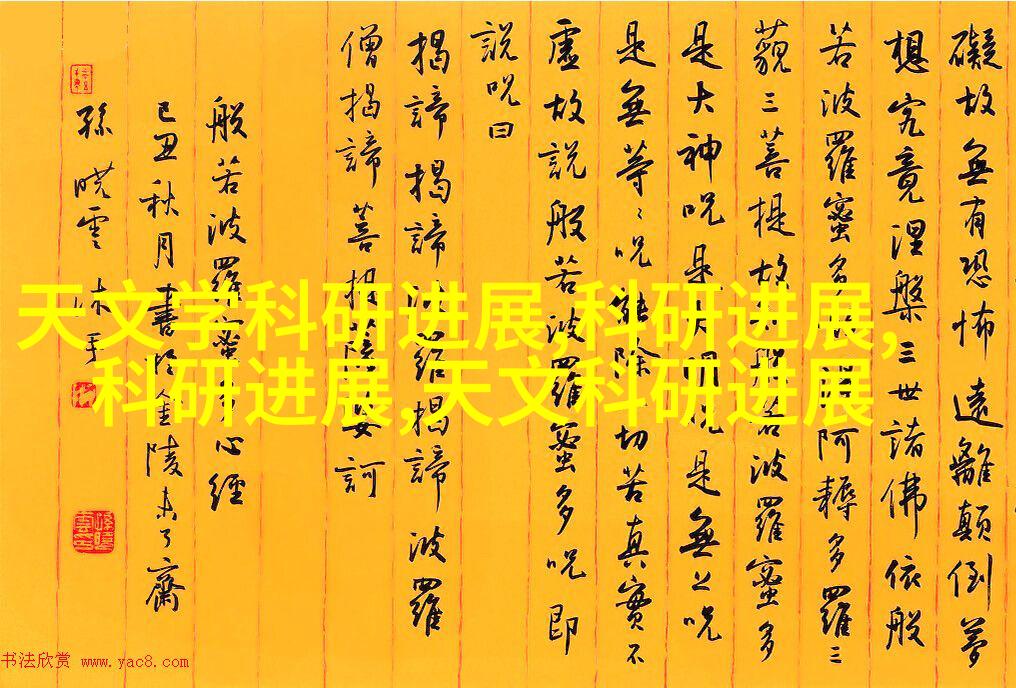 礙故無有恐怖遠離顛倒夢
想究竟涅槃三世諸佛依般
若波羅蜜多阿耨多羅三
藐三菩提故般若波羅蜜多
是大神咒是大明咒是無上咒
是無等〻咒能除切苦真實不
虛故說般若波羅蜜多咒即
說咒曰
揭諦揭諦波羅揭諦波羅
僧揭諦菩提薩婆訶
般若波羅蜜多心經
己丑秋月書於金陵未了齋
孫曉雲沐手
天文学科研进展,科研进展,
科研进展,天文科研进展
书法欣赏 www.yac8.com